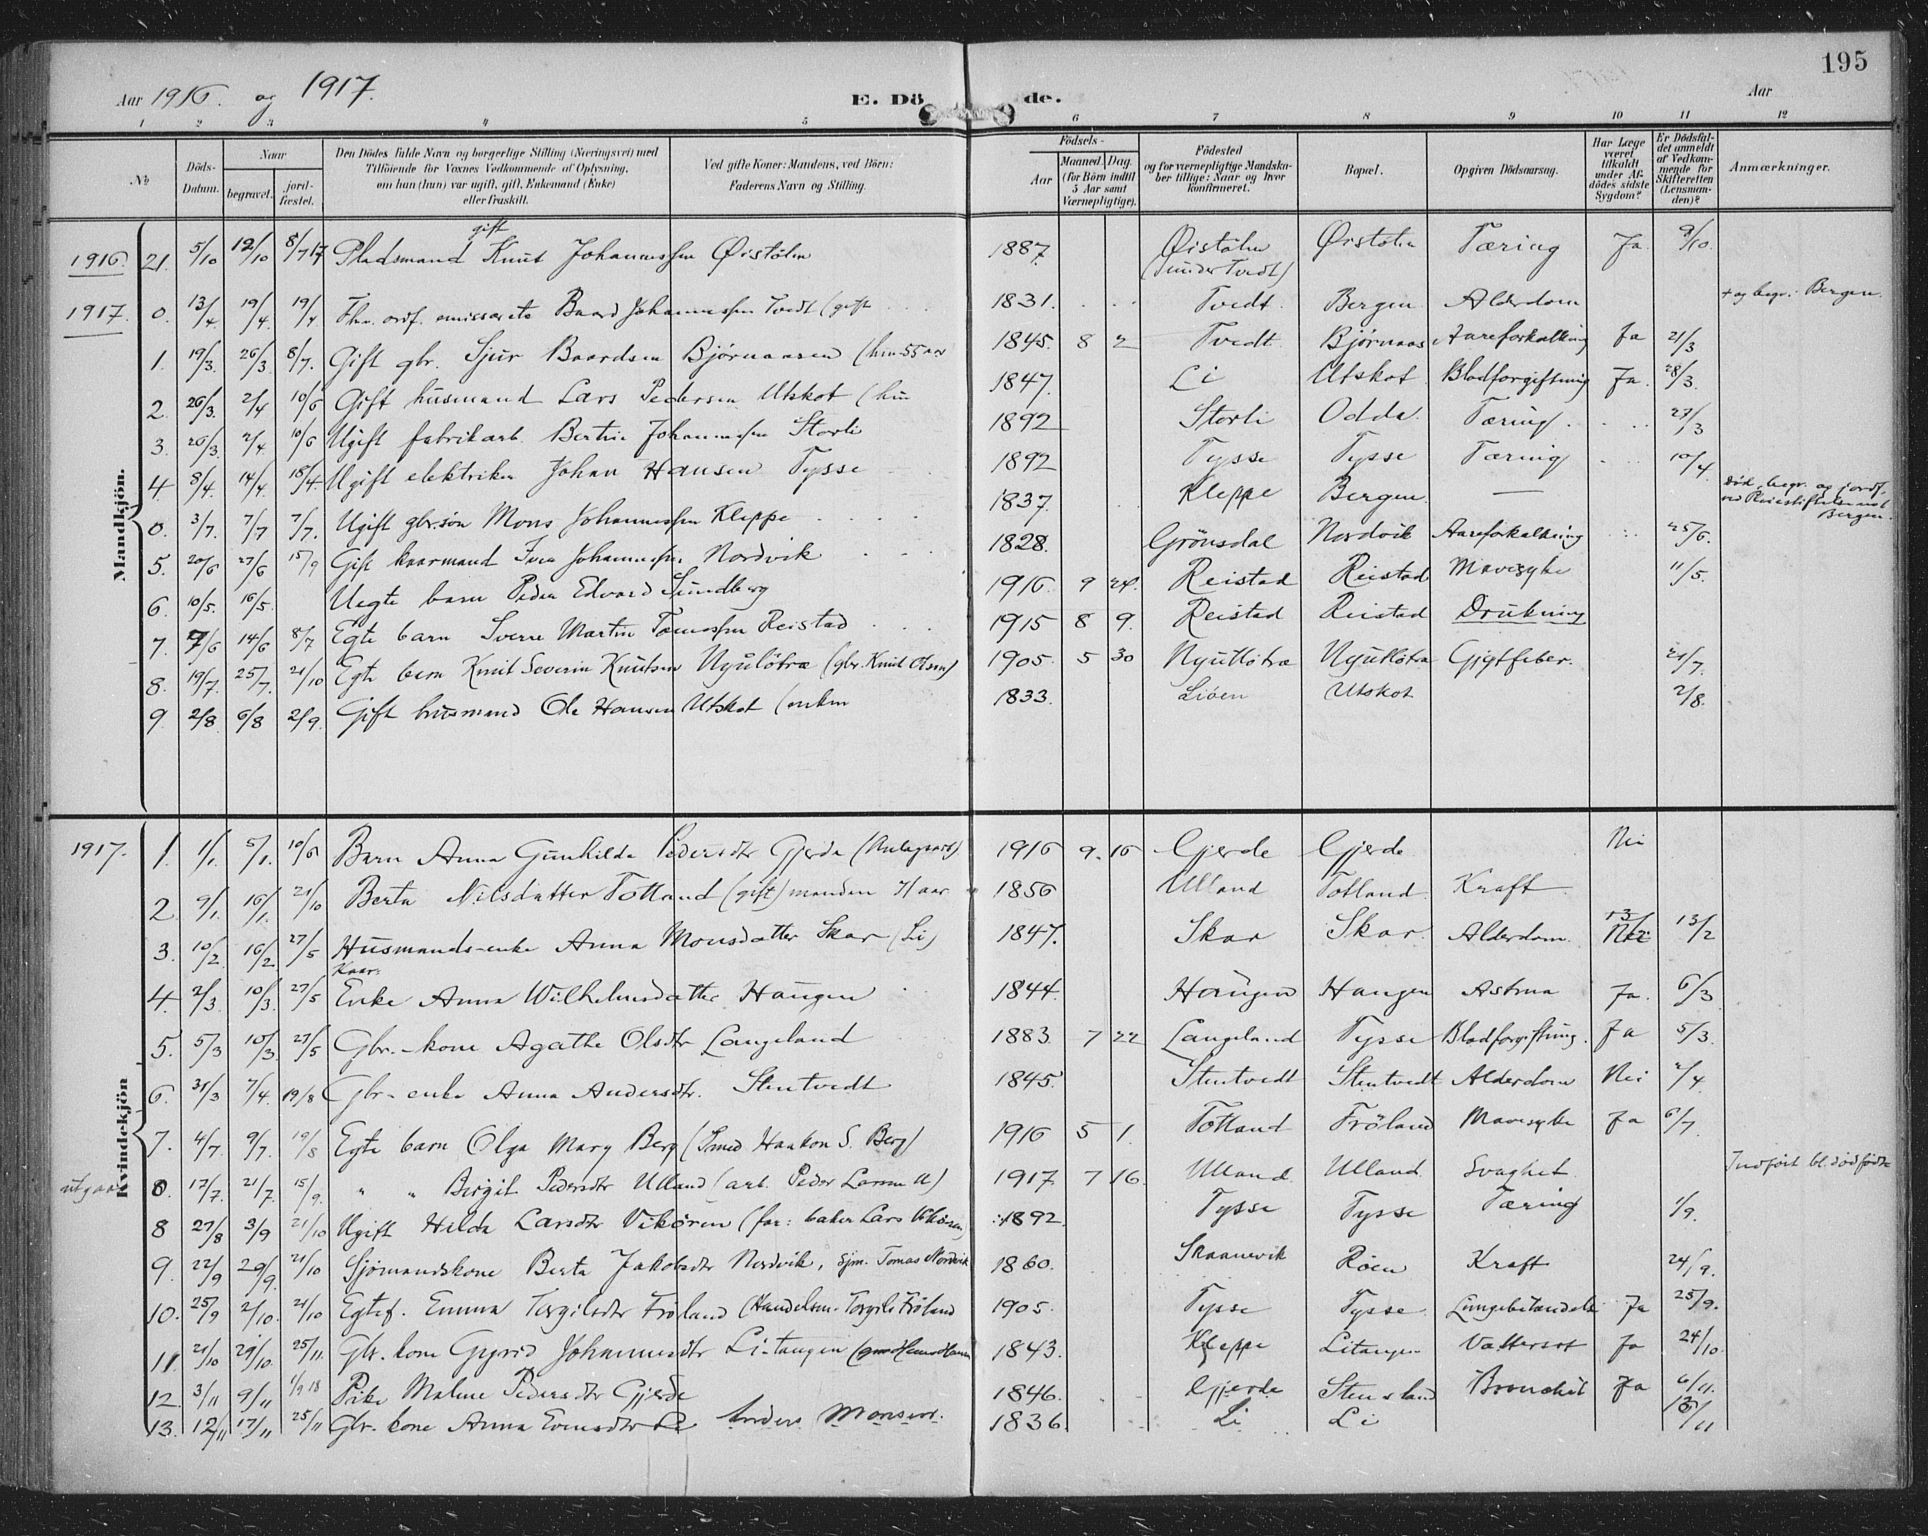 195
Aar 1916. og 1917.
E. Dö de.
Aar
1 2 3 4 5 6 7 8 9 10 11 12
No
Döds-Datum.
Naar
begravet.
jordfæstet.
Den Dödes fulde Navn og borgerlige Stilling (Næringsvei) med Tilföiende for Voxnes Vedkommende af Oplysning, om han (hun) var ugift, gift, Enkemand (Enke) eller fraskilt.
Ved gifte Koner: Mandens, ved Börn: Faderens Navn og Stilling.
Födsels-
Aar
Maaned. Dag.
(for Börn indtil 5 Aar samt Værnepligtige).
Födested og for værnepligtige Mandskaber tillige: Naar og hvor konfirmeret.
Bopæl.
Opgiven Dödsaarsag.
Har Læge været tilkaldt under Afdödes sidste Sygdom?
Er Dödsfaldet anmeldt af Vedkommende for Skifteretten (Lensmanden)?
Anmærkninger.
Mandkjön.
1916 21. 5/10 12/10 8/7 17 Pladsmand gift Knut Johannessen Øistølen 1887. Øistølen (under Tvedt) Øistølen Tæring Ja 9/10.
1917. 0. 13/4 19/4 19/4 Fhv. ordf. emissær Baard Johannessen Tvedt (gift 1831. Tvedt. Bergen Alderdom + og begr. i Bergen.
1. 19/3. 26/3. 8/7. Gift gbr. Sjur Baardsen Bjørnaasen 1845. 8 2 Tvedt Bjørnaas Aareforkalkning Ja 21/3
2. 26/3. 2/4 10/6 Gift husmand Lars Pedersen Utskot 1847. Li Utskot. Blodforgiftning Ja. 28/3.
3. 26/3. 2/4 10/6 Ugift fabrikarb. Bertin Johannessen Storli 1892 Storli Odda. Tæring. 27/3
4. 8/4. 14/4. 18/4. Ugift elektriker Johan Hansen Tysse 1892 Tysse Tysse Tæring 10/4
0. 3/7. 7/7 7/7. Ugift gbr.søn Mons Johannessen Kleppe 1837. Kleppe Bergen — Død, begr. og jordf. ved Pleiestiftelsen Bergen.
5. 20/6 27/6 15/9 Gift kaarmand Iver Johannessen Nordvik 1828. Grønsdal Nordvik Aareforkalkning 25/6.
6. 10/5. 16/5. Uegte barn Peder Edvard Sundberg 1916 9 24. Reistad Reistad Mavesyke 11/5.
7. 7/6 14/6 8/7 Egte barn Sverre Martin Tomassen Reistad 1915 8 9. Reistad Reistad Drukning
8. 19/7. 25/7. 21/10 Egte barn Knut Severin Knutsen Nyutløtræ (gbr. Knut Olsen) 1905. 5 30 Nyutløtræ Nyutløtræ Gigtfeber. 21/7.
9. 2/8 6/8 2/9. Gift husmand Ole Hansen Utskot (enken 1833. Liöen Utskot 2/8.
Kvindekjön
1917. 1. 1/1. 5/1. 10/6 Barn Anna Gunhilde Pedersdtr Gjerde 1916 9. 16 Gjerde Gjerde Nei
2. 9/1. 16/1. 21/10 Berta Nilsdatter Totland (gift) manden 71 aar 1856 Ulland Totland. Kraft
3. 10/2. 16/2. 27/5 Husmands-enke Anna Monsdatter Skar (Li) 1847. Skar Skar. Alderdom Nei 13/2
4. 2/3. 10/3. 27/5 Kaar: Enke Anna Wilhelmsdatter Haugen 1844. Haugen Haugen Astma Ja. 6/3
5. 5/3 10/3. 27/5 Gbr.-kone Agathe Olsdtr Langeland 1883. 7 22 Langeland Tysse Blodforgiftning. Ja 5/3.
6. 31/3 7/4. 19/8 Gbr-enke Anna Andersdtr. Stentvedt 1845. Stentvedt Stentvedt Alderdom Nei 2/4
7. 4/7. 9/7. 19/8 Egte barn Olga Mary Berg (Smed Haakon S. Berg) 1916 5 1. Totland Fröland Mavesyke Ja 6/7.
utgaar 8. 17/7. 21/7. 15/9. " " Birgit Pedersdtr Ulland (arb. Peder Larsen U) 1917. 7 16. Ulland. Ulland. Svaghet Indført bl. dødfødte
8 27/8 3/9 21/10 Ugift Hilda Larsdtr Vikören (far: baker Lars Vikören) 1892. Tysse Tysse Tæring 1/9.
9. 22/9 29/9. 21/10 Sjömandskone Berta Jakobsdtr Nordvik, sjm. Tomas Nordvik 1860. Skaanevik Röen Kraft 24/9.
10. 25/9 2/10. 21/10 Egtef. Emma Torgilsdtr Fröland (Handelsm. Torgils Fröland 1905. Tysse Tysse Lungebetændelse Ja 25/9.
11. 21/10 29/10. 25/11. Gbr. kone Gyrid Johannesdtr Li-tangen 1843. Kleppe Litangen Vattersot Ja 24/10.
12. 3/11 9/11 1/9 18 Pike Malene Pedersdtr Gjerde 1846. Gjerde Stensland Bronchit Ja 6/11.
13. 12/11 17/11 25/11 Gbr. kone Anna Evensdtr Li Anders Monsen. 1836. Li Li 13/11